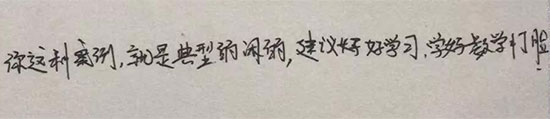 你这种案例,就是典型的闲的,建议好好学习,学好数学打脸!